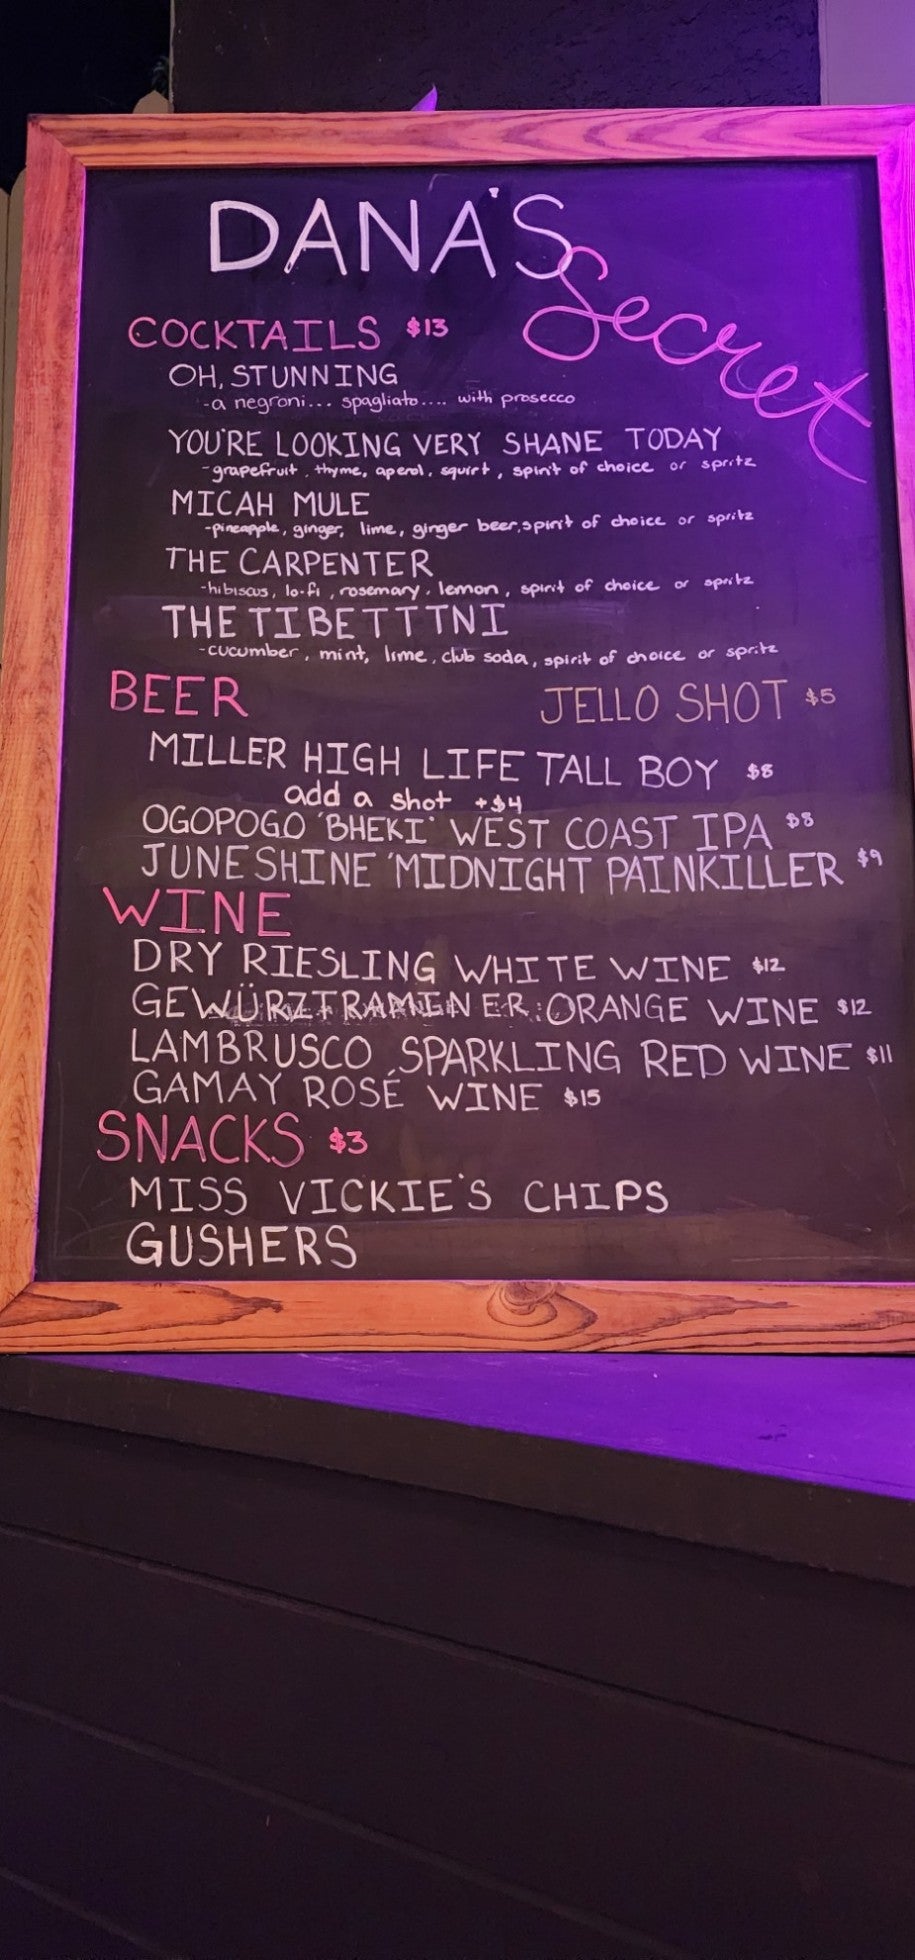 DANA'S
Secret
COCKTAILS $13
OH, STUNNING
-a negroni... spagliato.... with prosecco
YOU'RE LOOKING VERY SHANE TODAY
-grapefruit, thyme, aperol, squirt, spirit of choice or spritz
MICAH MULE
-pineapple, ginger, lime, ginger beer, spirit of choice or spritz
THE CARPENTER
-hibiscus, lo-fi, rosemary, lemon, spirit of choice or spritz
THE TIBETTTNI
-cucumber, mint, lime, club soda, spirit of choice or spritz
BEER
JELLO SHOT $5
MILLER HIGH LIFE TALL BOY $8
add a shot +$4
OGOPOGO 'BHEKI' WEST COAST IPA $8
JUNESHINE 'MIDNIGHT PAINKILLER $9
WINE
DRY RIESLING WHITE WINE $12
GEWÜRZTRAMENER: ORANGE WINE $12
LAMBRUSCO SPARKLING RED WINE $11
GAMAY ROSÉ WINE $15
SNACKS $3
MISS VICKIE'S CHIPS
GUSHERS